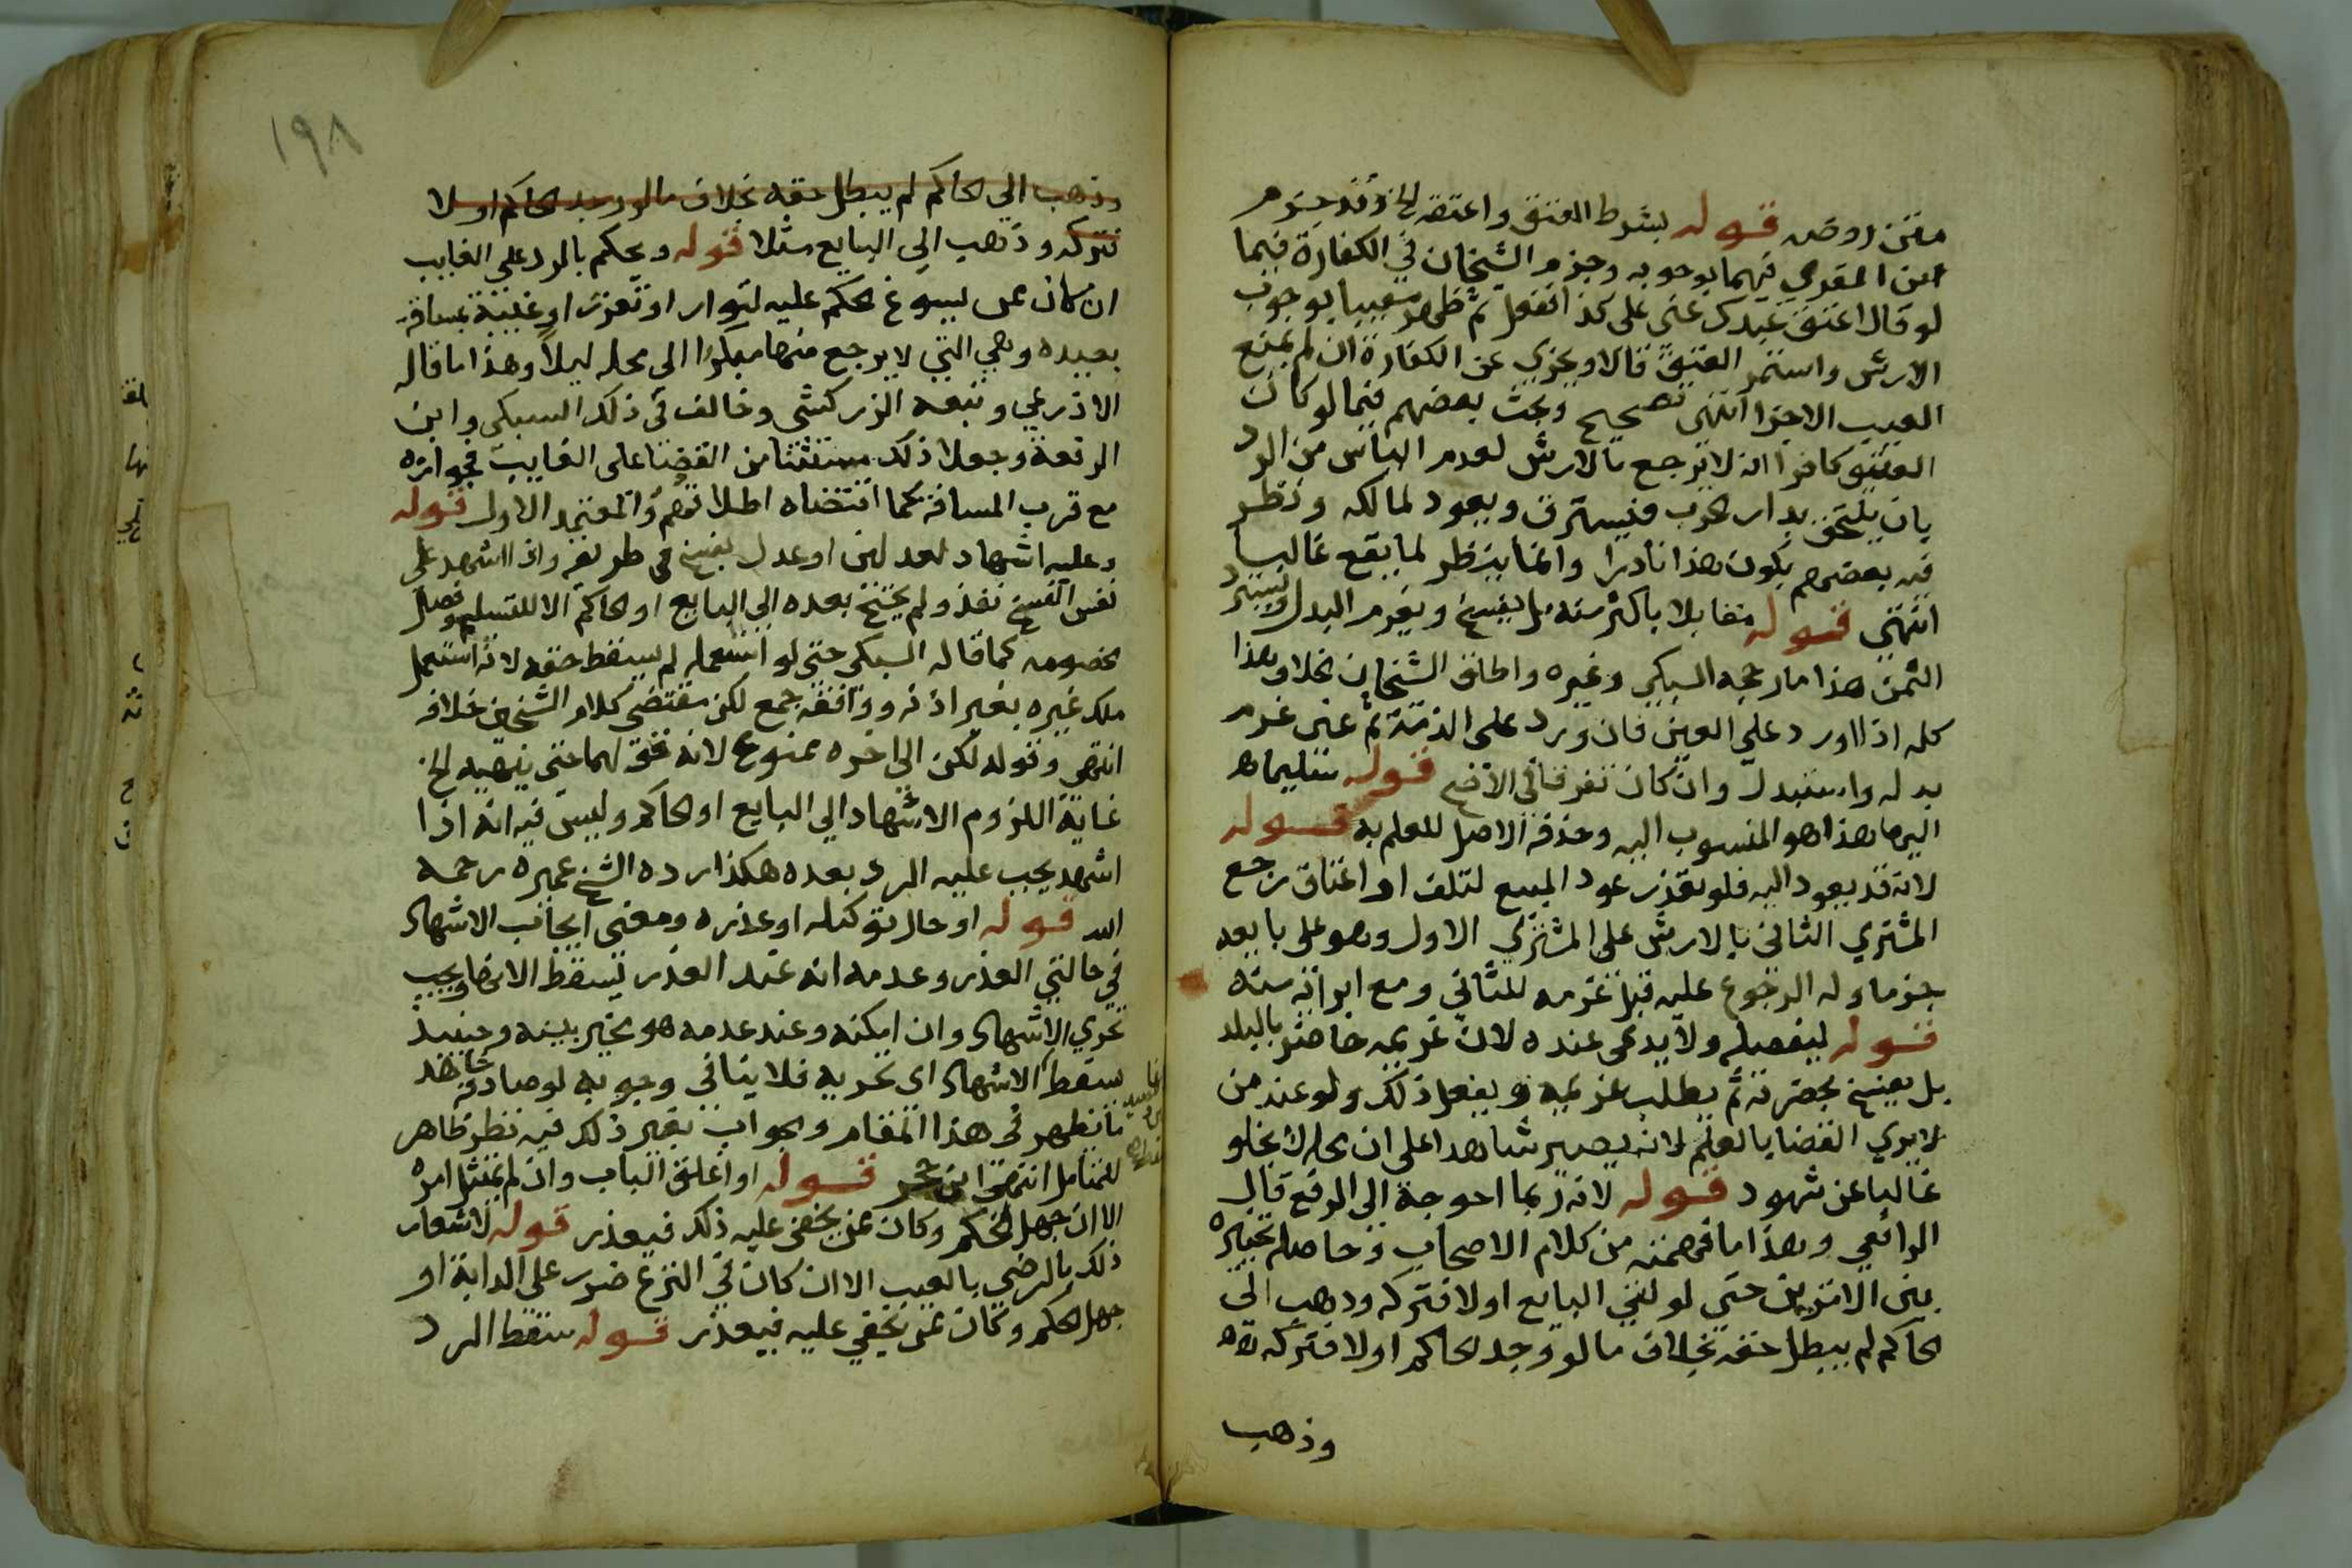 متن روض قوله بشرط العتق واعتقه الخ وقد جزم
ابن المقري فيهما بوجوبه وجزم الشيخان في الكفارة فيما
لو قال اعتق عبدك عني على كذا ففعل ثم ظهر معيبا بوجوب
الارش واستمر العتق قالا ويجزي عن الكفارة ان لم يمنع
العيب الاجزا انتهى تصحيح وبحث بعضهم فيما لو كان
العتيق كافرا انه لا يرجع بالارش لعدم الياس من الرد
بان يلتحق بدار الحرب فيسترق ويعود لمالكه ونظر
فيه بعضهم بكون هذا نادرا وانما ينظر لما يقع غالبا
انتهى قوله مقابلا باكثر منه بل يفسخ ويغرم البدل ويسترد
الثمن هذا ما رجحه السبكي وغيره واطلق الشيخان خلافه وهذا
كله اذا اورد على العين فان ورد على الذمة ثم عين غرم
بدله واستبدل وان كان تفرقا في الاصح قوله تسليما هـ
اليها هذا هو المنسوب اليه وحذفه الاصل للعلم به قوله
لانه قد يعود اليه فلو تعذر عود المبيع لتلف او اعتاق رجع
المشتري الثاني بالارش على المشتري الاول وهو على بايعه
جزما وله الرجوع عليه قبل غرمه للثاني ومع ابرائه منه
قوله ليفصله ولا يدعي عنده لان غريمه حاضر بالبلد
بل يفسخ بحضرته ثم يطلب غريمه ويفعل ذلك ولو عند من
لا يري القضا بالعلم لانه يصير شاهدا على ان محله لا يخلو
غالبا عن شهود قوله لانه ربما احوجه الى الرفع قال
الرافعي وهذا ما فهمته من كلام الاصحاب وحاصله تخييره
بين الامرين حتى لو لقي البايع اولا فتركه وذهب الى
الحاكم لم يبطل حقه بخلاف ما لو وجد الحاكم اولا فتركه
وذهب
١٩٨
وذهب الي الحاكم لم يبطل حقه بخلاف ما لو وجد الحاكم اولا
فتركه وذهب الي البايع مثلا قوله ويحكم بالرد على الغايب
ان كان ممن يسوغ الحكم عليه لتوار او تعزز او غيبة بمسافة
بعيده وهي التي لا يرجع منها مبكرا الي محله ليلا وهذا ما قاله
الاذرعي وتبعه الزركشي وخالف في ذلك السبكي وابن
الرفعة وجعلا ذلك مستثنا من القضا على الغايب فجوازه
مع قرب المسافة كما اقتضاه اطلاقهم والمعتمد الاول قوله
وعليه اشهاد لعدلين او عدل بفسخ في طريقه واذا اشهد علي
نفس الفسخ نفذ ولم يحتج بعده الي البايع او الحاكم الا للتسليم وفصل
الخصومه كما قاله السبكي حتى لو استعمله لم يسقط حقه لانه استعمل
ملك غيره بغير اذنه ووافقه جمع لكن مقتضي كلام الشيخين خلافه
انتهى وقوله لكن الي اخره ممنوع لانه محقق لهما حتي ينهيه الخ
غاية اللزوم الاشهاد الي البايع او الحاكم وليس فيه انه اذا
اشهد يجب عليه الرد بعده هكذا رده الشيخ عميره رحمه
الله قوله او حال توكيله او عذره ومعنى ايجاب الاشهاد
في حالتي العذر وعدمه انه عند العذر يسقط الانها ويجب
تحري الاشهاد وان امكنه وعند عدمه هو مخير بينه وحينيذ
يسقط الاشهاد اي تحريه فلا ينافي وجوبه لو صادفه شاهد
ما يظهر في هذا المقام والجواب بغير ذلك فيه نظر ظاهر
للمتامل انتهى ابن حجر قوله او اغلق الباب وان لم يمتثل امره
الا ان جهل الحكم وكان ممن يخفى عليه ذلك فيعذر قوله لاشعار
ذلك بالرضي بالعيب الا ان كان في النزع ضرر على الدابة او
جهل الحكم وكان ممن يخفي عليه فيعذر قوله سقط الرد